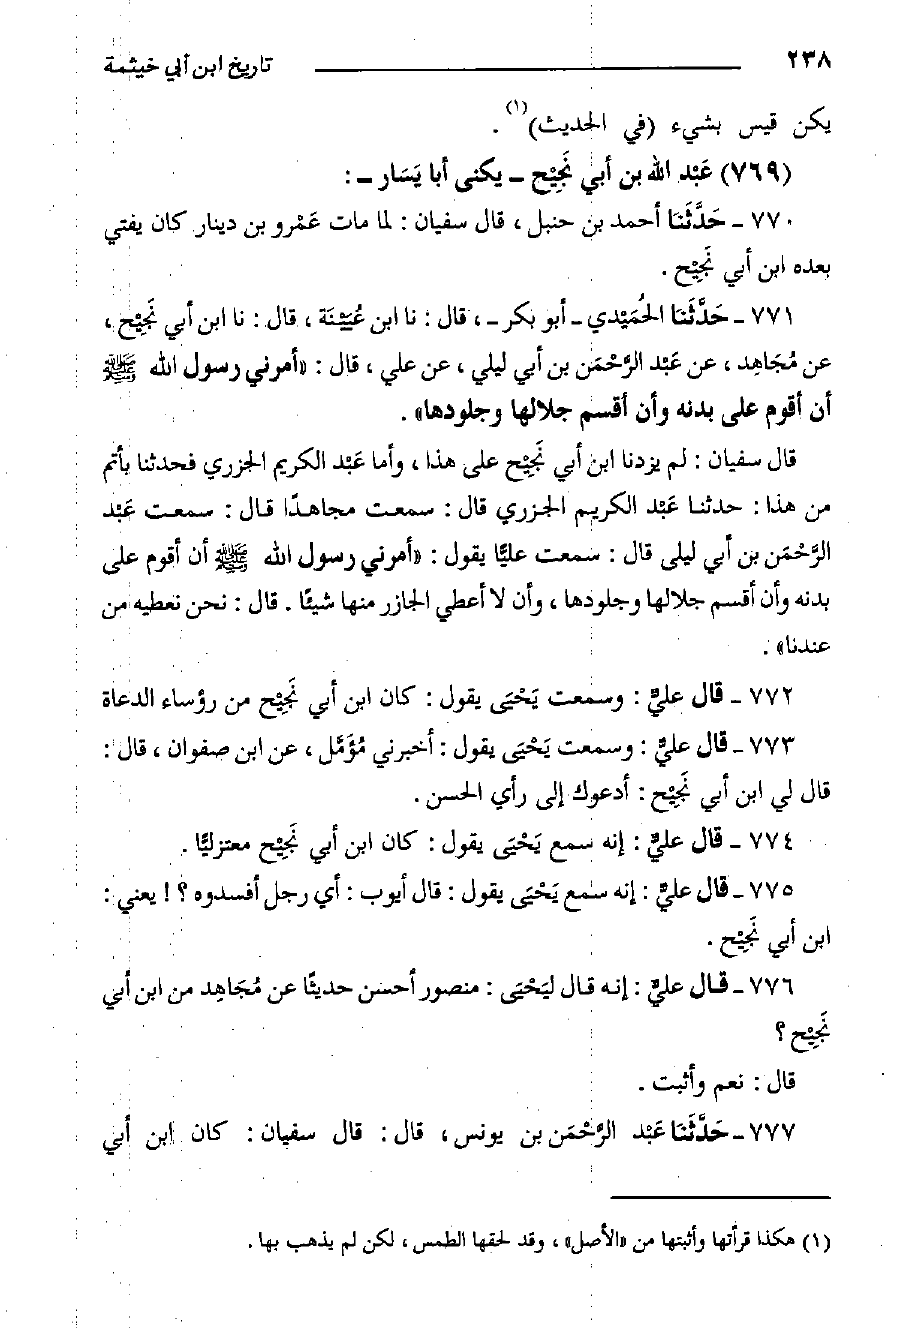 ٢٣٨ تاريخ ابن أبي خيثمة
يكن قيس بشيء (في الحديث)(١) .
(٧٦٩) عَبْد الله بن أبي نَجِيْح ـ يكنى أبا يَسَار ـ :
٧٧٠ ـ حَدَّثَنَا أحمد بن حنبل ، قال سفيان : لما مات عَمْرو بن دينار كان يفتي
بعده ابن أبي نَجِيْح .
٧٧١ ـ حَدَّثَنَا الحُمَيْدي ـ أبو بكر ـ ، قال : نا ابن عُيَيْنَة ، قال : نا ابن أبي نَجِيْح ،
عن مُجَاهِد ، عن عَبْد الرَّحْمَن بن أبي ليلى ، عن علي ، قال : «أمرني رسول الله ﷺ
أن أقوم على بدنه وأن أقسم جلالها وجلودها» .
قال سفيان : لم يزدنا ابن أبي نَجِيْح على هذا ، وأما عَبْد الكريم الجزري فحدثنا بأتم
من هذا : حدثنا عَبْد الكريم الجزري قال : سمعت مجاهدًا قال : سمعت عَبْد
الرَّحْمَن بن أبي ليلى قال : سمعت عليًّا يقول : «أمرني رسول الله ﷺ أن أقوم على
بدنه وأن أقسم جلالها وجلودها ، وأن لا أعطي الجازر منها شيئًا . قال : نحن نعطيه من
عندنا» .
٧٧٢ ـ قال عليٌّ : وسمعت يَحْيَى يقول : كان ابن أبي نَجِيْح من رؤساء الدعاة
٧٧٣ ـ قال عليٌّ : وسمعت يَحْيَى يقول : أخبرني مُؤَمَّل ، عن ابن صفوان ، قال :
قال لي ابن أبي نَجِيْح : أدعوك إلى رأي الحسن .
٧٧٤ ـ قال عليٌّ : إنه سمع يَحْيَى يقول : كان ابن أبي نَجِيْح معتزليًّا .
٧٧٥ ـ قال عليٌّ : إنه سمع يَحْيَى يقول : قال أيوب : أي رجل أفسدوه ؟ ! يعني :
ابن أبي نَجِيْح .
٧٧٦ ـ قال عليٌّ : إنه قال ليَحْيَى : منصور أحسن حديثًا عن مُجَاهِد من ابن أبي
نَجِيْح ؟
قال : نعم وأثبت .
٧٧٧ ـ حَدَّثَنَا عَبْد الرَّحْمَن بن يونس ، قال : قال سفيان : كان ابن أبي
(١) هكذا قرأتها وأثبتها من «الأصل» ، وقد لحقها الطمس ، لكن لم يذهب بها .